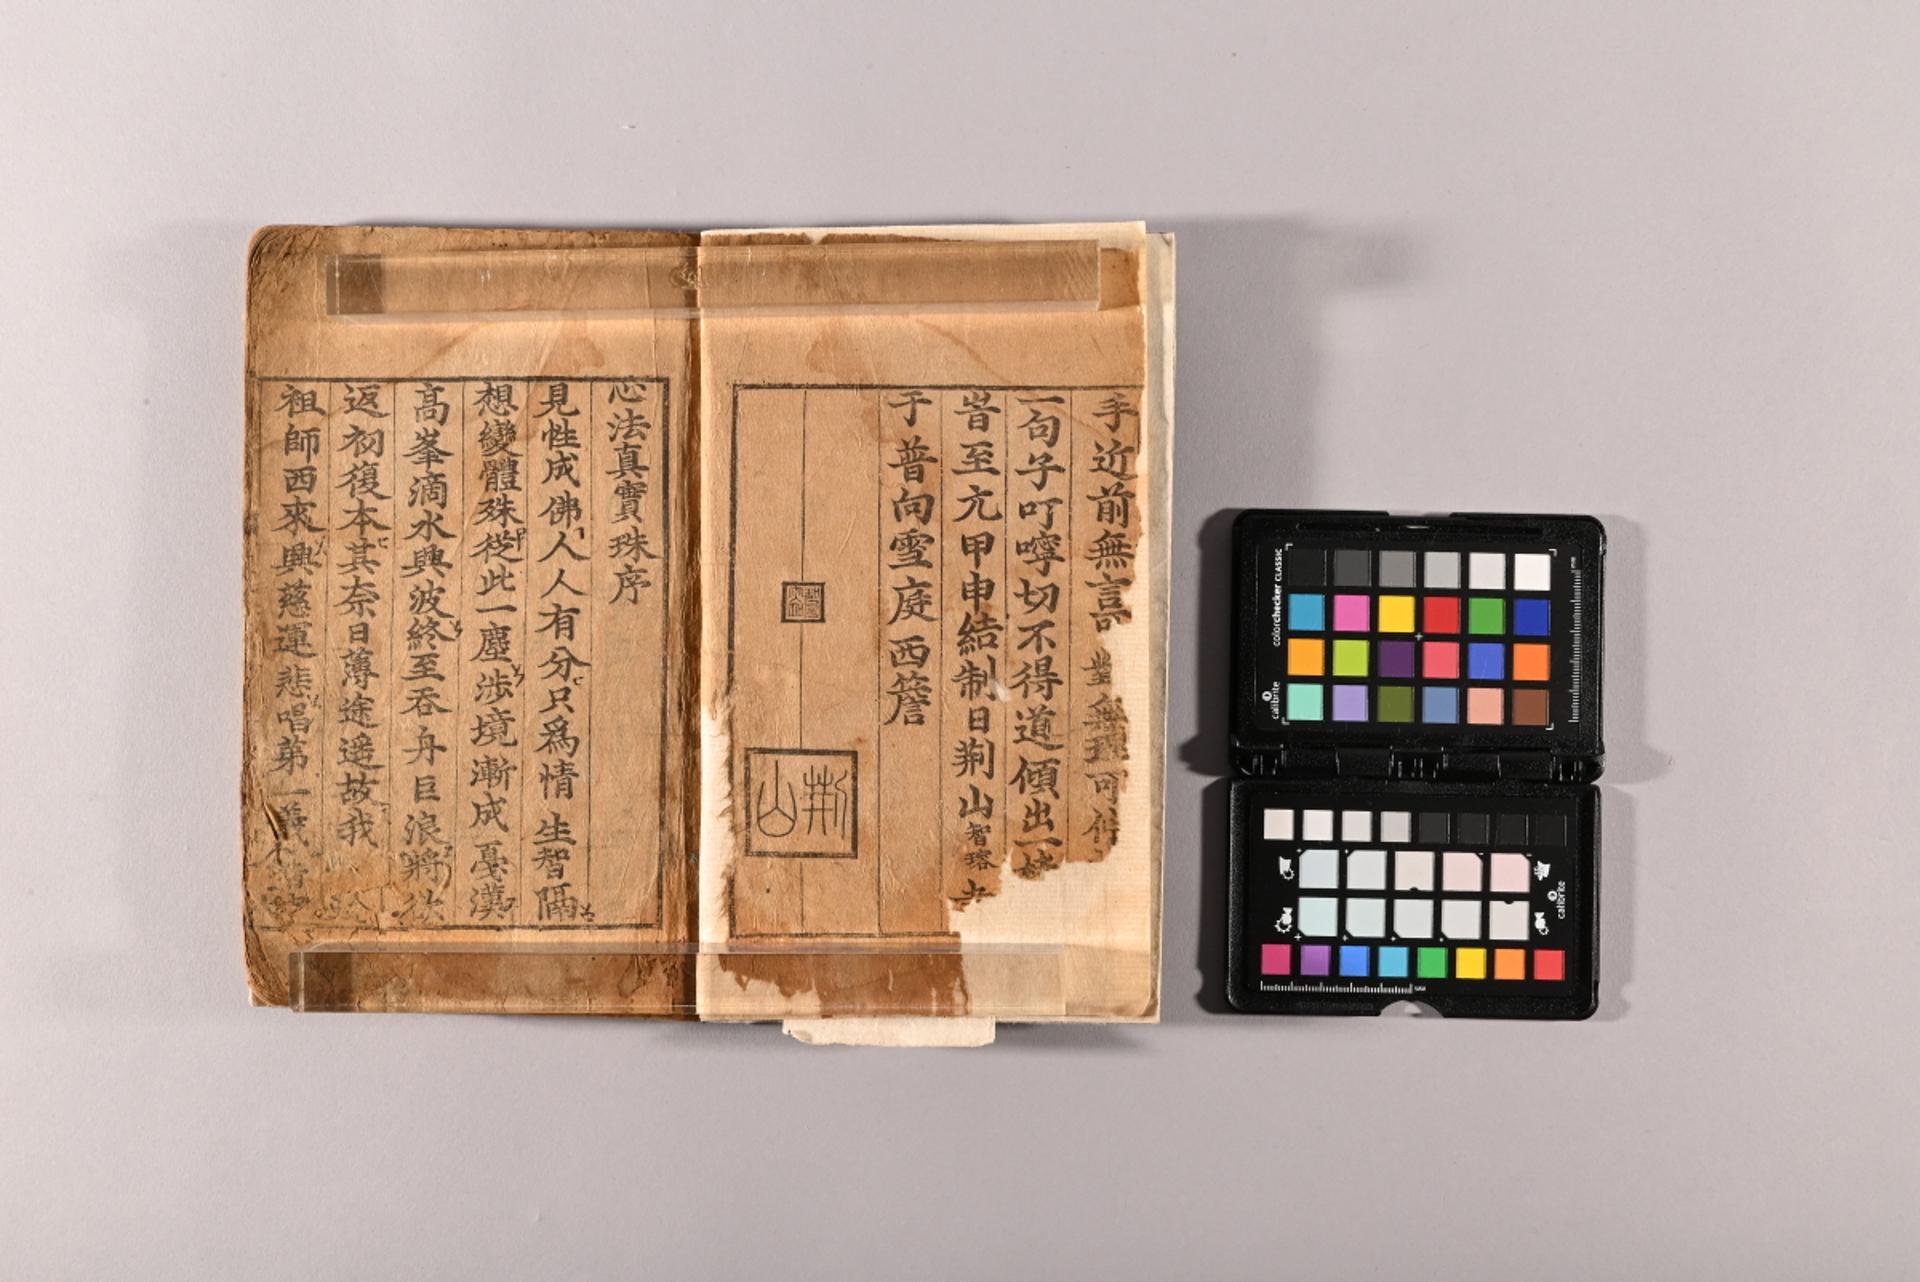 手近前無言
一句子叮嚀切不得道傾出一
旹至亢甲申結制日荊山智瑢
于普向雪庭西簷
荊山
心法真實珠序
見性成佛人人有分只爲情生智隔
想變體殊從此一塵涉境漸成戞漢
高峯滴水興波終至呑舟巨浪將欲
返初復本其奈日薄途遥故我
祖師西來興慈運悲唱第一義
colorchecker CLASSIC
calibrite
calibrite